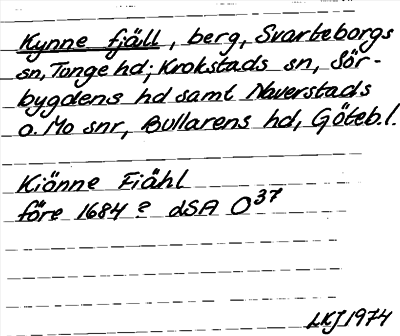 Kynne fjäll, berg, Svarteborgs
sn, Tunge hd; Krokstads sn, Sör-
bygdens hd samt Naverstads
o. Mo snr, Bullarens hd, Göteb.l.
Kiönne Fiähl
före 1684? dSA O37
LKJ 1974